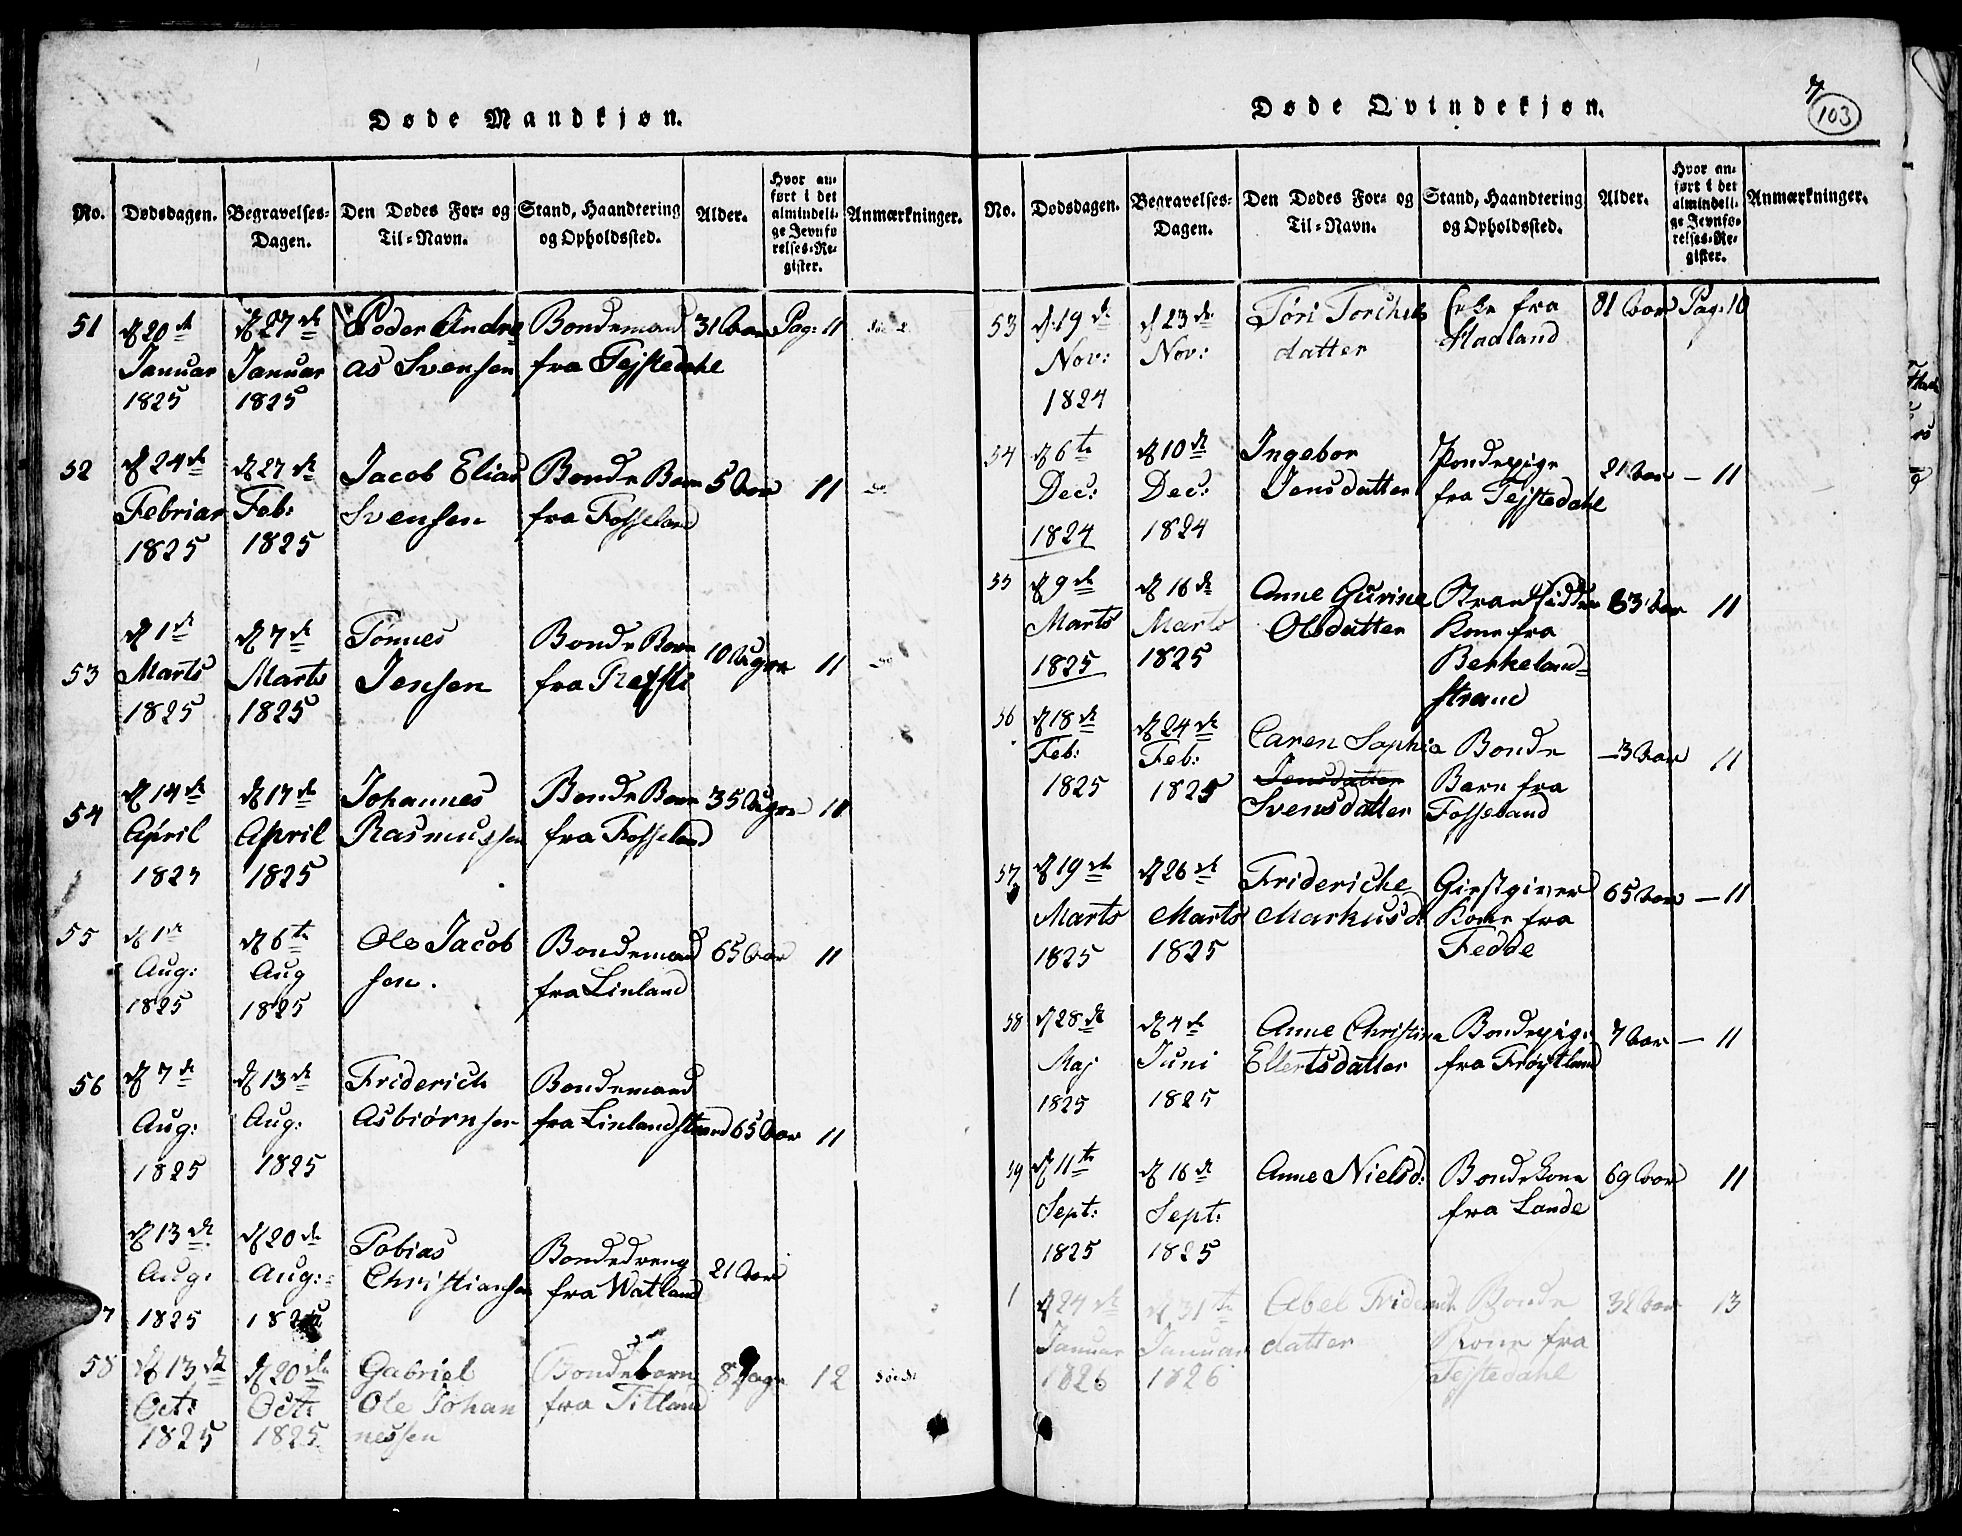 Døde Mandkjøn.
No. Dødsdagen. Begravelses-Dagen. Den Dødes For- og Til-Navn. Stand, Haandtering og Opholdssted. Alder. Hvor anført i det almindelige Jevnførelses-Register. Anmærkninger.
51 d 20de Januar 1825 d 27de Januar 1825 Peder Andreas Svensen Bondemand fra Tejstedahl 31 Aar Pag: 11
52 d 24de Febriar 1825 d 27de Feb: 1825 Jacob Elias Svensen Bonde Barn fra Fosseland 5 Aar 11
53 d 1de Marts 1825 d 7de Marts 1825 Tønnes Jensen Bonde Barn fra Refsti 10 Uger 11
54 d 14de April 1825 d 17de April 1825 Johannes Rasmussen Bonde Barn fra Fosseland 35 Uger 11
55 d 1de Aug: 1825 d 6te Aug 1825 Ole Jacobsen. Bondemand fra Linland 65 Aar 11
56 d 7de Aug: 1825 d 13de Aug: 1825 Friderich Asbiørnsen Bondemand fra Linlandstrand 65 Aar 11
7 d 13de Aug: 1825 d 20de Aug: 1825 Tobias Christiansen Bondedreng fra Watland 21 Aar
58 d 13de Oct: 1825 d 20de Oct: 1825 Gabriel Ole Johannessen Bondebarn fra Titland 8 Dage 12
Døde Qvindekjøn.
103
No. Dødsdagen. Begravelses-Dagen. Den Dødes For- og Til-Navn. Stand, Haandtering og Opholdssted. Alder. Hvor anført i det almindelige Jevnførelses-Register. Anmærkninger.
53 d 19de Nov: 1824 d 23de Nov: Tøri Torchilsdatter Enke fra Stadland 81 Aar Pag: 10
54 d 6te Dec: 1824 d 10de Dec: 1824 Ingebor Jensdatter Bondepige fra Tejstedahl 21 Aar — 11
55 d 9de Marts 1825 d 16de Marts 1825 Anne Gurine Olsdatter Strandsidder Kone fra Berkelandstrand 83 Aar 11
56 d 18de Feb: 1825 d 24de Feb: 1825 Caren Sophia Jensdatter Svensdatter Bonde Barn fra Fosseland — 3 Aar 11
57 d 19de Marts 1825 d 26de Marts 1825 Frideriche Markusd. Giestgiver Kone fra Fedde 65 Aar — 11
58 d 28de Maj 1825 d 4de Juni 1825 Anne Christina Ellertsdatter Bondepige fra Frøytland 7 Aar — 11
59 d 11te Sept: 1825 d 16de Sept: 1825 Anne Nielsd: Bondekone fra Lande 69 Aar 11
1 d 24de Januar 1826 d 31te Januar 1826 Abel Fridrichdatter Bonde Kone fra Tejstedahl 32 Aar 13